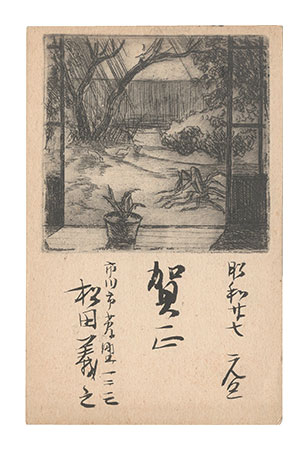 昭和廿七 元旦
賀正
市川市菅野一二一七
松田義之